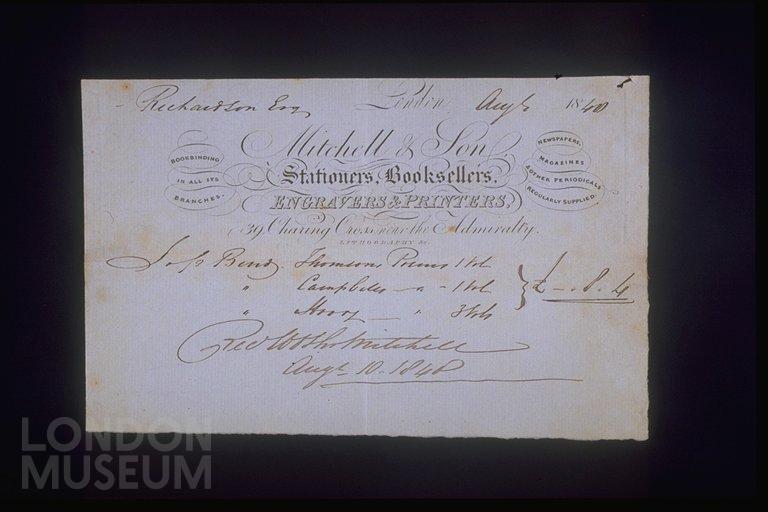 Richardson Esq London Augt 1848
Mitchell & Son,
Stationers, Booksellers,
ENGRAVERS & PRINTERS,
39, Charing Cross, near the Admiralty.
LITHOGRAPHY &c.
BOOKBINDING
IN ALL ITS
BRANCHES.
NEWSPAPERS,
MAGAZINES
& OTHER PERIODICALS
REGULARLY SUPPLIED.
To Bindg Thomsons Poems 1 Vol
" Campbells " 1 Vol
" 3 Vols
£ - . 8 . 4
Mitchell
Augt 10. 1848
LONDON
MUSEUM